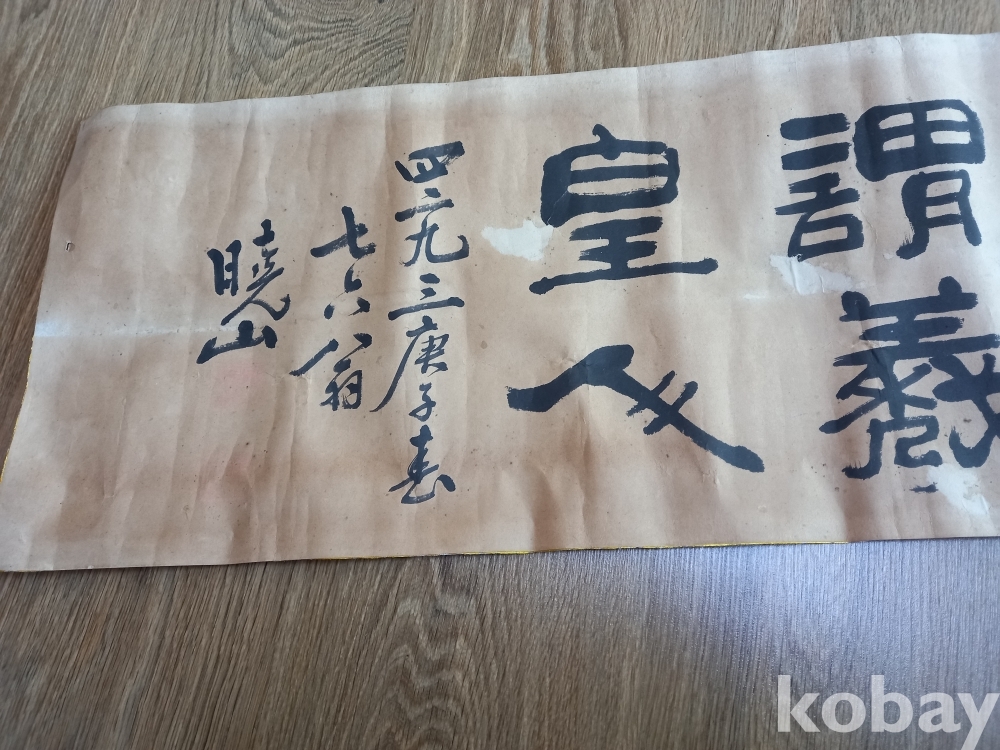 謂羲
皇人
四二九三庚子春
七六翁
曉山
kobay